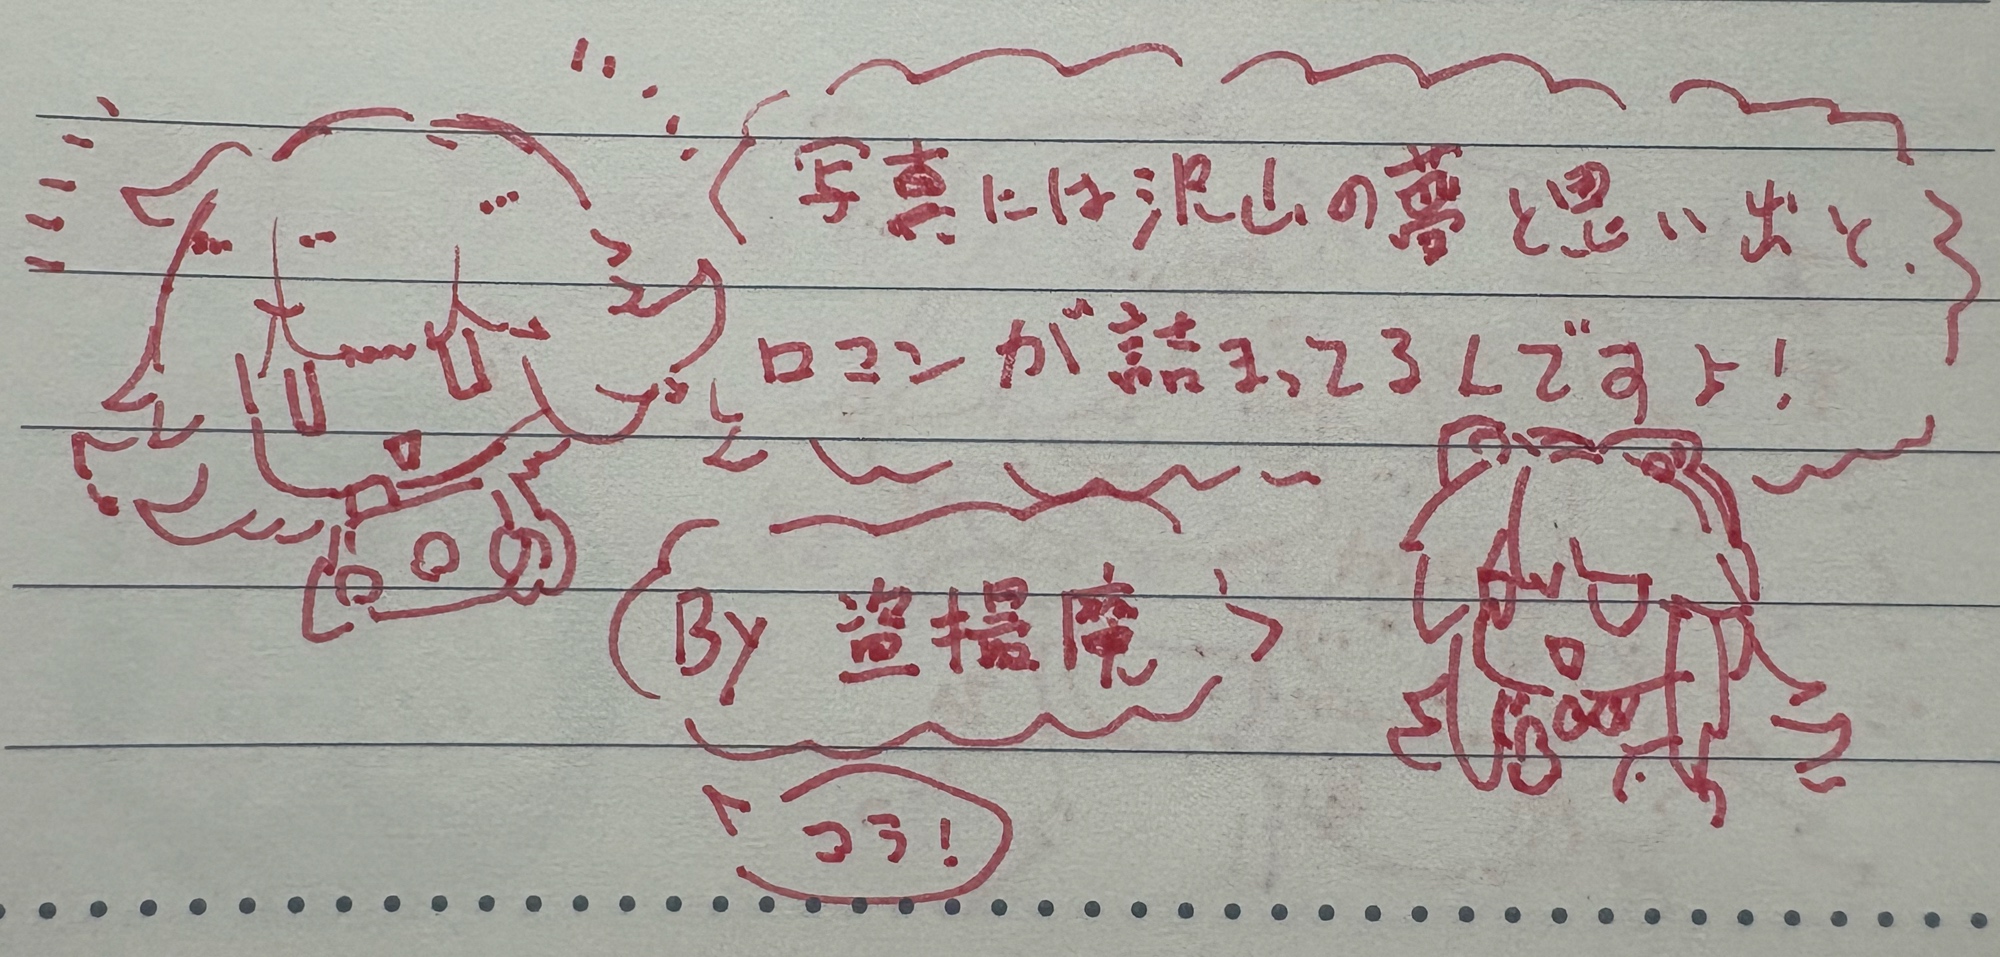 写真には沢山の夢と思い出と、
ロコンが詰まってるんですよ!
By 盗撮魔
コラ!